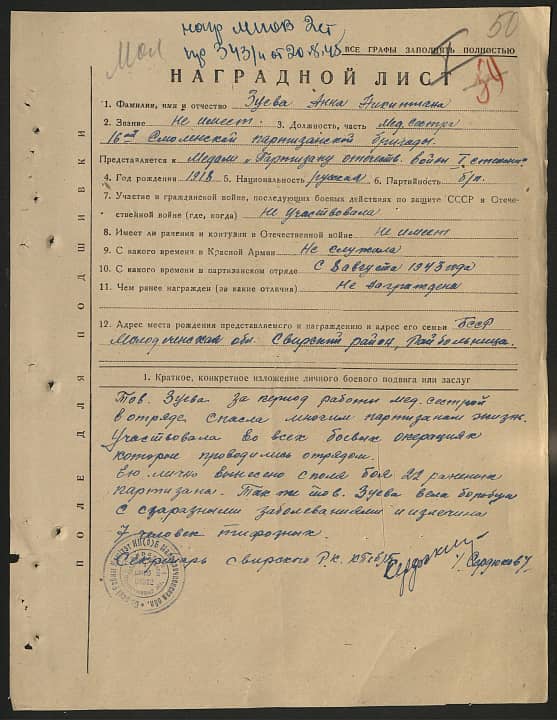 50
Мол
нагр МПОВ 2 ст
пр 343/н от 20.8.48
54
ВСЕ ГРАФЫ ЗАПОЛНЯТЬ ПОЛНОСТЬЮ
НАГРАДНОЙ ЛИСТ
1. Фамилия, имя и отчество Зуева Анна Никитична
2. Звание Не имеет. 3. Должность, часть Мед. сестра
16ой Смоленской партизанской бригады.
Представляется к Медали "Партизану отечеств. войны I степени"
4. Год рождения 1918 5. Национальность русская 6. Партийность б/п.
7. Участие в гражданской войне, последующих боевых действиях по защите СССР и Отече-
ственной войне (где, когда) Не участвовала
8. Имеет ли ранения и контузии в Отечественной войне Не имеет
9. С какого времени в Красной Армии Не служила
10. С какого времени в партизанском отряде С 8 августа 1943 года
11. Чем ранее награжден (за какие отличия) Не награждена
12. Адрес места рождения представляемого к награждению и адрес его семьи БССР
Молодеченская обл. Свирский район, Рай больница.
1. Краткое, конкретное изложение личного боевого подвига или заслуг
Тов. Зуева за период работы мед. сестрой
в отряде спасла многим партизанам жизнь.
Участвовала во всех боевых операциях
которые проводились отрядом.
Ею лично вынесено с поля боя 22 раненых
партизана. Так же тов. Зуева вела борьбу
с заразными заболеваниями и излечила
7 человек тифозных.
Секретарь Свирского Р.К. КП(б)Б
/Сердюков/
ПОЛЕ ДЛЯ ПОДШИВКИ